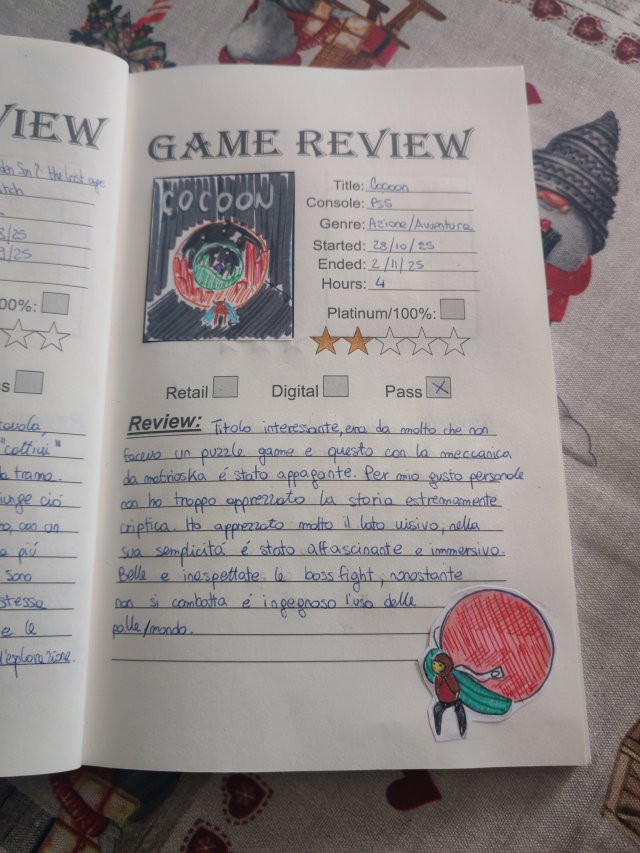 VIEW
/25
9/25
00%:
tavola,
"cattivi"
trama.
iunge ciò
più
sono
stessa
e le
l'esplorazione.
GAME REVIEW
COCOON
Title: Cocoon
Console: PS5
Genre: Azione/Avventura
Started: 28/10/25
Ended: 2/11/25
Hours: 4
Platinum/100%:
Retail Digital Pass X
Review: Titolo interessante, era da molto che non
facevo un puzzle game e questo con la meccanica
da matrioska é stato appagante. Per mio gusto personale
non ho troppo apprezzato la storia estremamente
criptica. Ho apprezzato molto il lato visivo, nella
sua semplicità é stato affascinante e immersivo.
Belle e inaspettate le boss fight, nonostante
non si combatta é ingegnoso l'uso delle
palle/mondo.